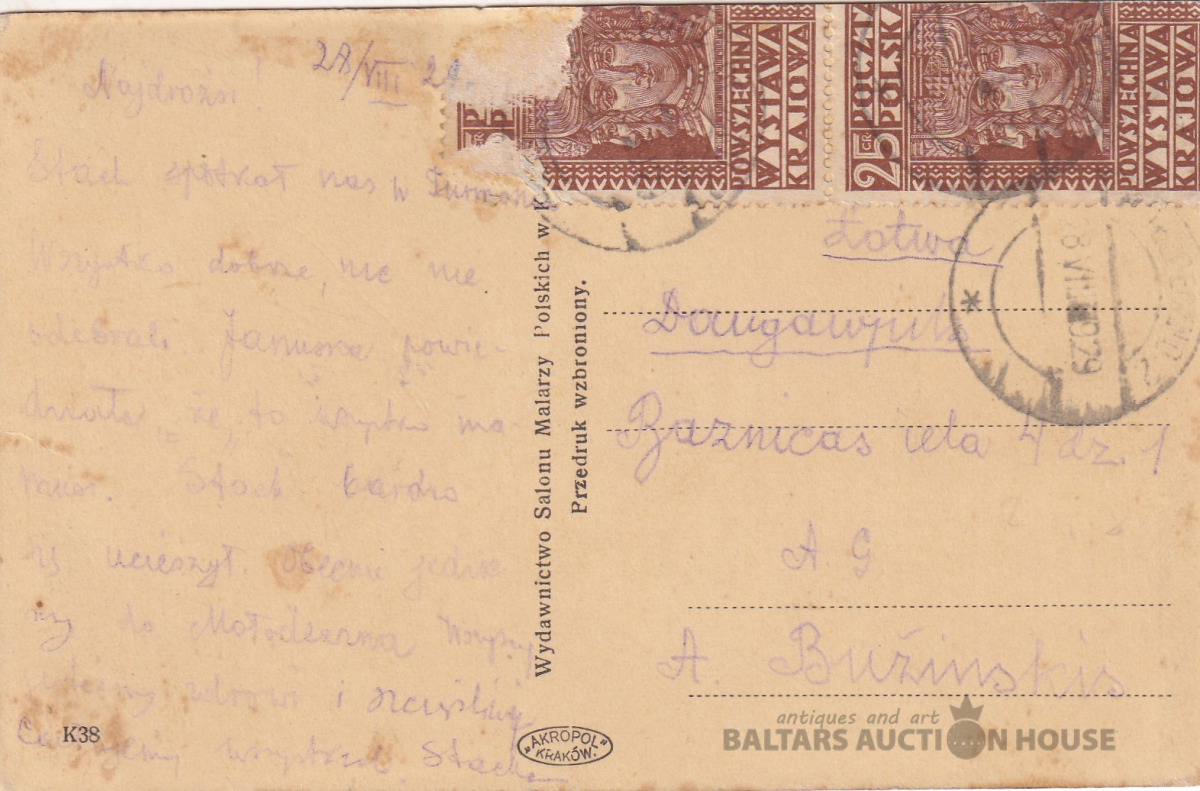 28/VIII 29
Najdrożsi!
Stach spotkał nas w
Wszystko dobrze, nic nie
odebrali. Januszka powie-
działa, że to wszystko ma-
musi. Stach bardzo
się ucieszył. Obecnie jedzie-
my do Mołodeczna
zdrowi i szczęśliwi
Całujemy wszystkich. Stach
K38
Wydawnictwo Salonu Malarzy Polskich w K
Przedruk wzbroniony.
"AKROPOL"
KRAKÓW.
GR
P
P
POWSZECHNA
WYSTAWA
KRAJOWA
25 GR
POCZTA
POLSKA
POWSZECHNA
WYSTAWA
KRAJOWA
8 VIII 1929
Łotwa
Daugawpils
Baznicas iela 4 dz. 1
A. G
A. Bużinskis
antiques and art
BALTARS AUCTION HOUSE